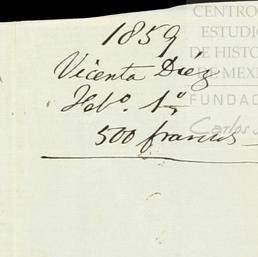 1859
Vicenta Diéz
Feb.º 1º
500 francos
CENTRO
ESTUDIO
DE HISTO
DE MEXI
FUNDAC
Carlos S